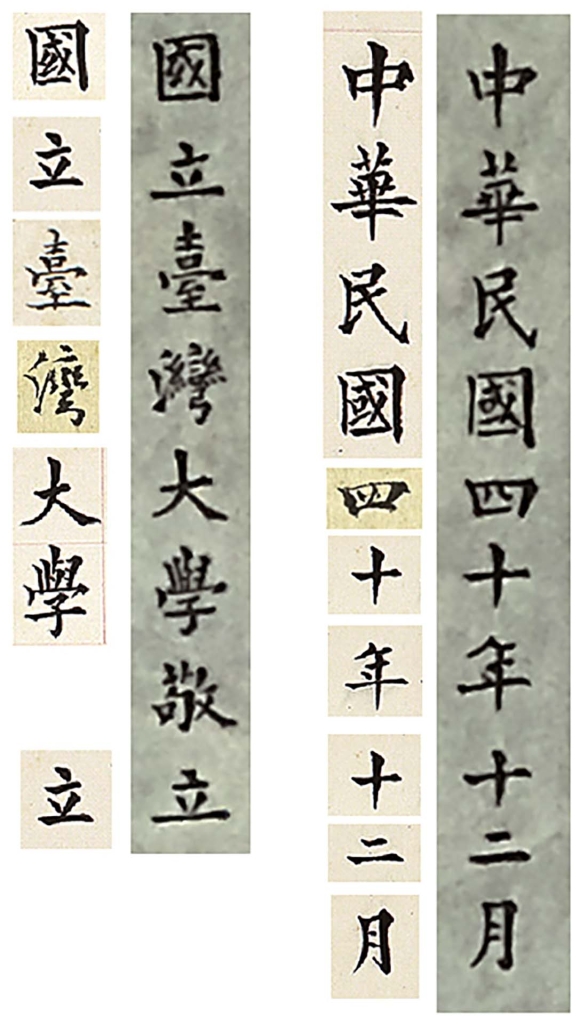 中華民國四十年十二月
中華民國四十年十二月
國立臺灣大學敬立
國立臺灣大學立